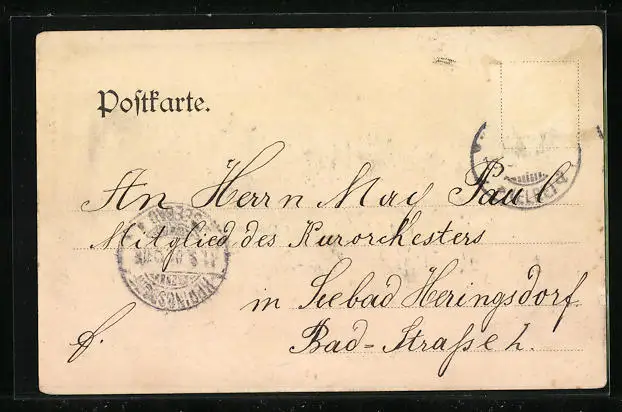 Postkarte.
An Herrn Max Paul
Mitglied des Kurorchesters
in Seebad Heringsdorf.
Bad-Straße
f.
SEEBAD
HERINGSDORF